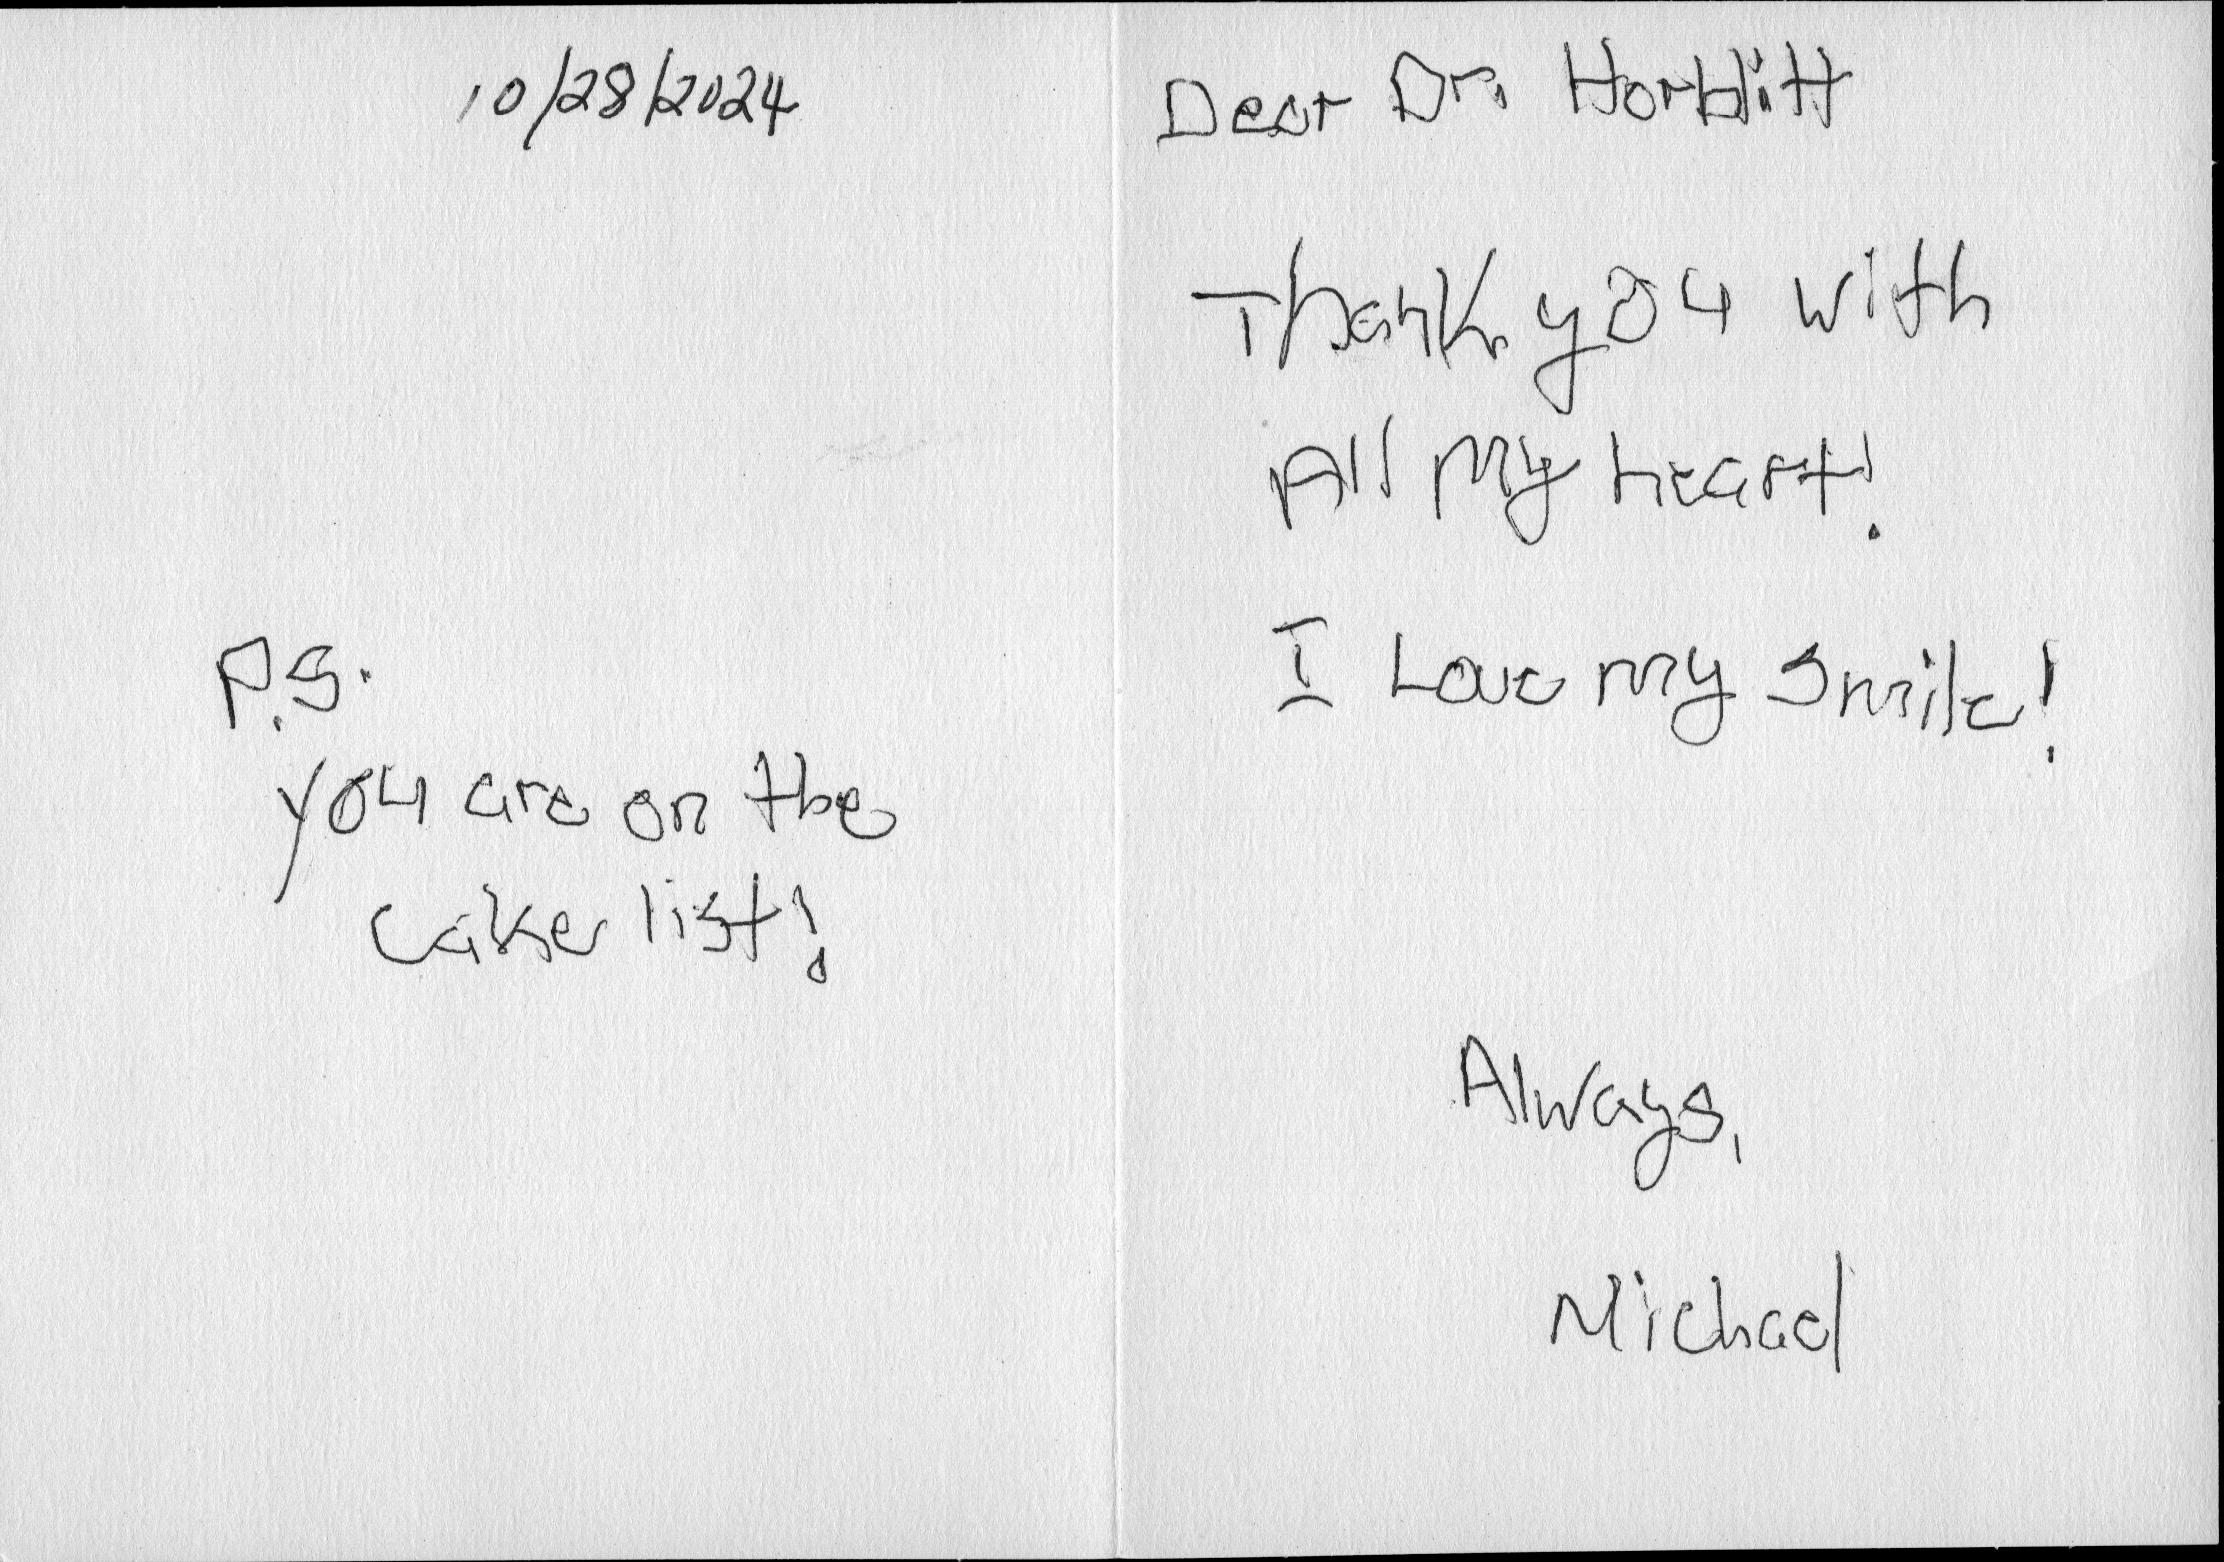 10/28/2024
P.S.
you are on the
cake list!
Dear Dr. Horblitt
Thank you with
All My heart!
I Love my smile!
Always,
Michael